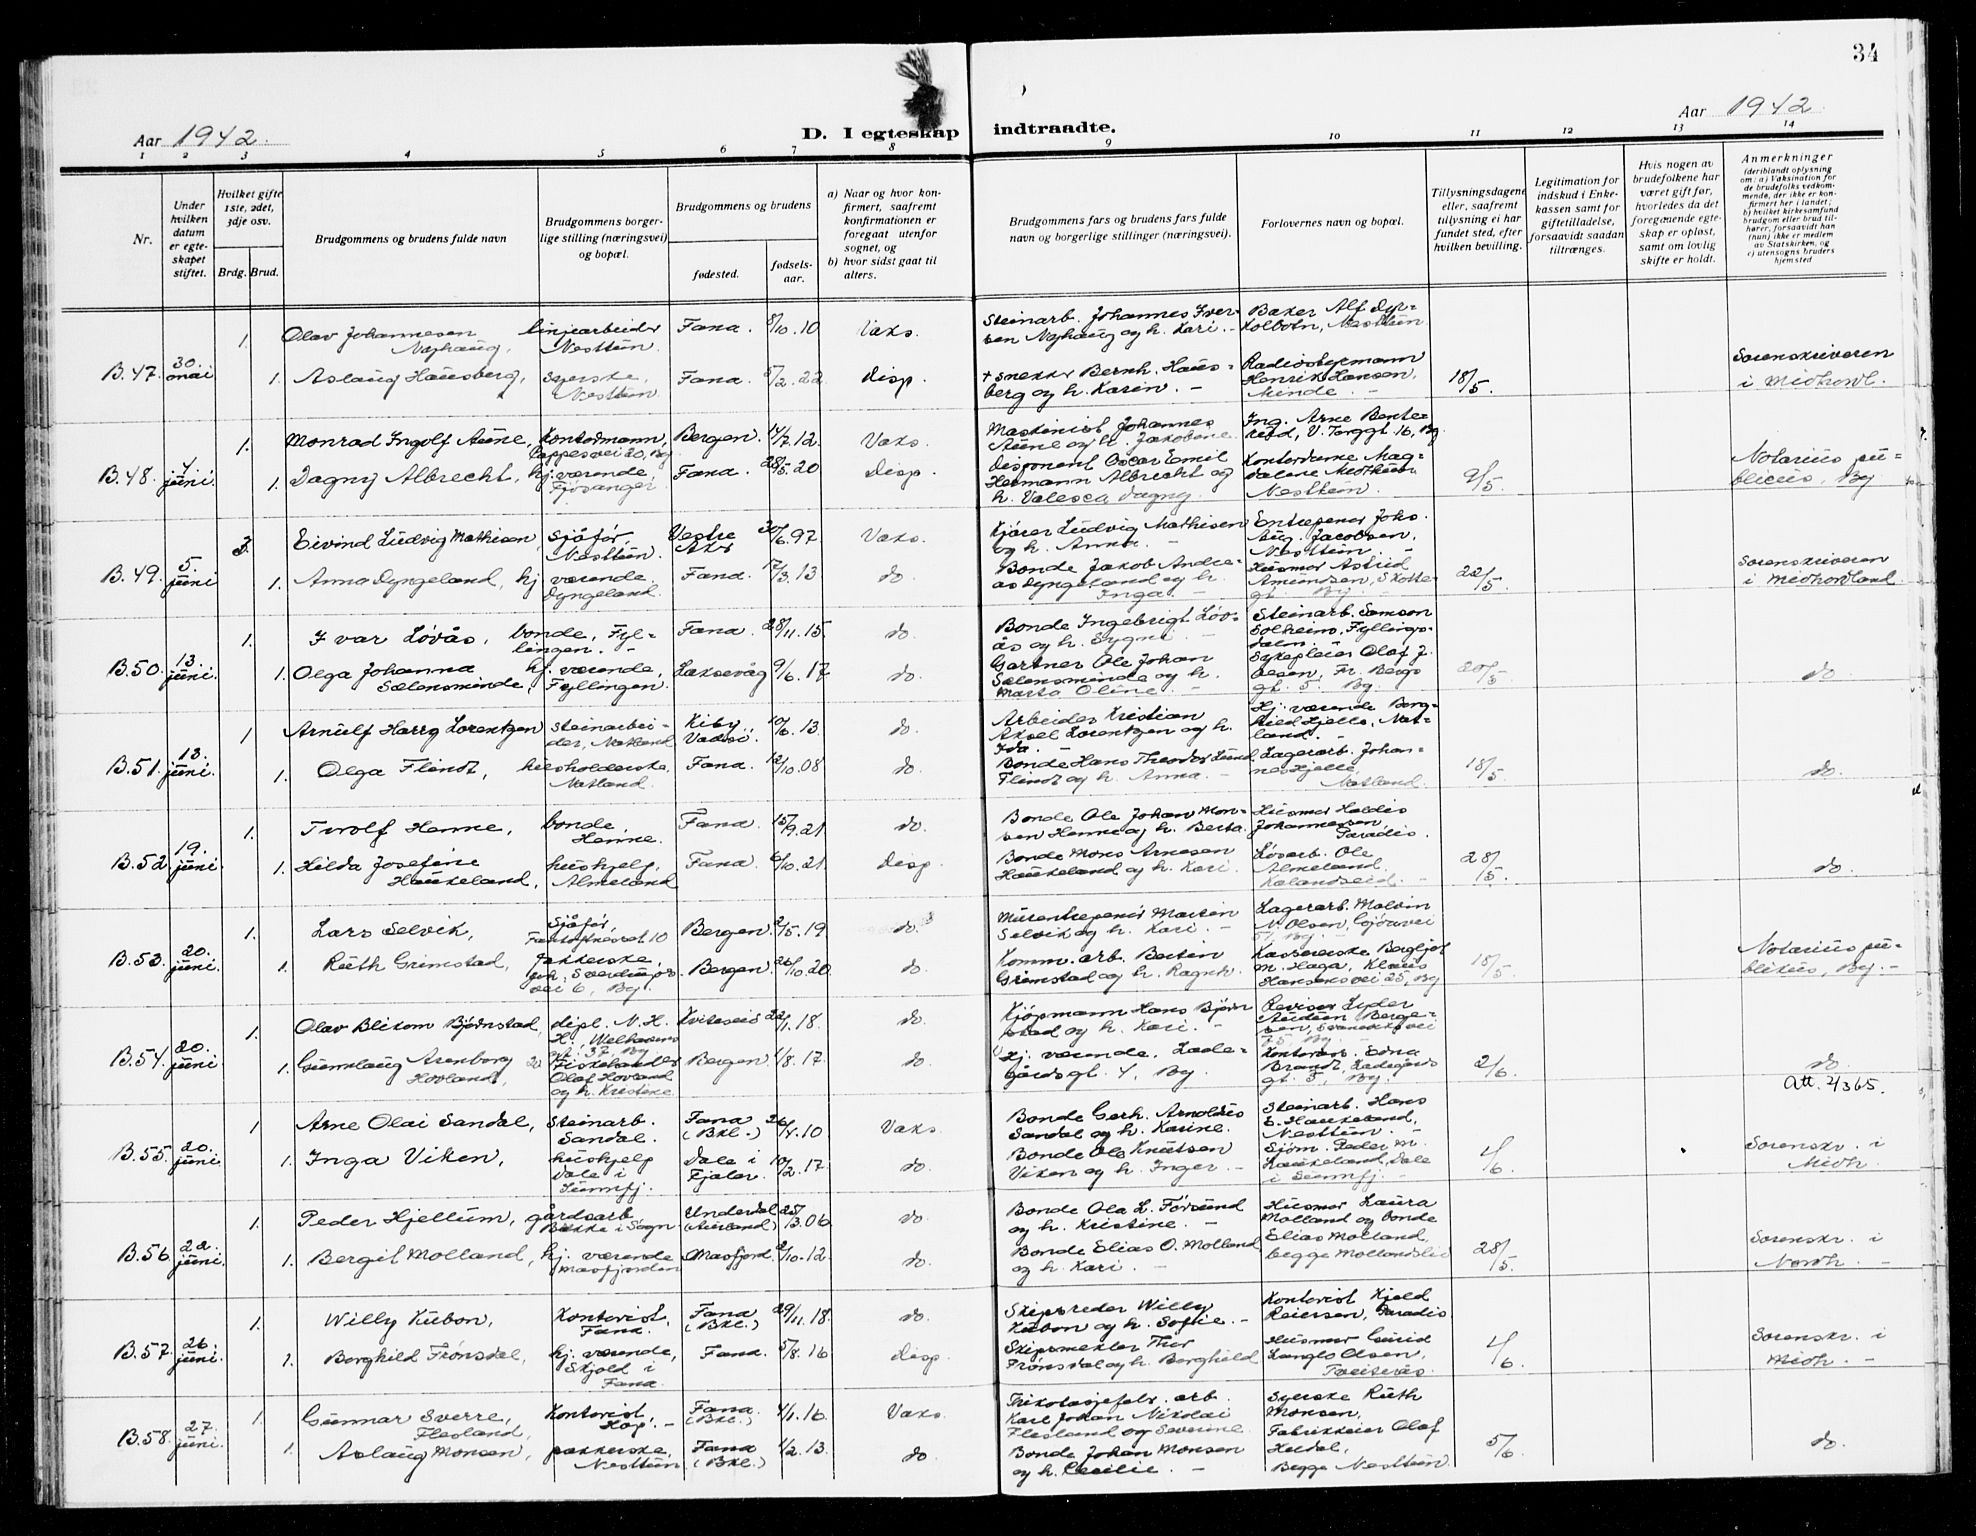 34
Aar 1942.
D. I egteskap indtraadte.
Aar 1942.
1 2 3 4 5 6 7 8 9 10 11 12 13 14
Nr.
Under hvilken datum er egteskapet stiftet.
Hvilket gifte 1ste, 2det, 3dje osv.
Brdg. Brud.
Brudgommens og brudens fulde navn
Brudgommens borgerlige stilling (næringsvei) og bopæl.
Brudgommens og brudens
fødested.
fødselsaar.
a) Naar og hvor konfirmert, saafremt konfirmationen er foregaat utenfor sognet, og
b) hvor sidst gaat til alters.
Brudgommens fars og brudens fars fulde navn og borgerlige stillinger (næringsvei).
Forlovernes navn og bopæl.
Tillysningsdagene eller, saafremt tillysning ei har fundet sted, efter hvilken bevilling.
Legitimation for indskud i Enkekassen samt for giftetilladelse, forsaavidt saadan tiltrænges.
Hvis nogen av brudefolkene har været gift før, hvorledes da det foregaaende egteskap er opløst, samt om lovlig skifte er holdt.
Anmerkninger (deriblandt oplysning om: a) Vaksination for de brudefolks vedkommende, der ikke er konfirmert her i landet; b) hvilket kirkesamfund brudgom eller brud tilhører, forsaavidt han (hun) ikke er medlem av Statskirken, og c) utensogns bruders hjemsted
B.47. 30. mai
1. Olav Johannesen Nøphaug, linjearbeider Nesttun. Fana. 8/10.10 Vaks. Steinarb. Johannes Iversen Nøphaug og h. Kari. - Baker Alf Dyrkolbotn, Nesttun.
1. Aslaug Hausberg, syerske, Nesttun. Fana. 5/2.22 Disp. + snekker Bernh. Hausberg og h. Karin. - Radiostyrmann Henrik Hansen, Minde. - 18/5. Sorenskriveren i Midhordl.
B.48. 4. juni
1. Monrad Ingolf Aune, Kontormann, Cappesvei 20, By. Bergen. 14/7.12. Vaks. Maskinist Johannes Aune og h. Jakobine Ing. Arne Benterud, V. Torggt. 16, By
1. Dagny Albrecht, hj.værende Fjøsanger Fana. 28/5.20 Disp. Disponent Oscar Emil Hermann Albrecht og h. Valesca Dagny. Kontordame Magdalene Midthun Nesttun. 9/5. Notarius publicus, By
B.49. 5. juni
3. Eivind Ludvig Mathisen, sjåfør, Nesttun. Vestre Aker 30/6.97 Vaks. Kjører Ludvig Mathisen og h. Anna. - Entrepenør Johs. Aug. Jacobsen, Nesttun. -
1. Anna Dyngeland, hj værende. Dyngeland. Fana. 17/3.13 do. Bonde Jakob Andreas Dyngeland og h. Inga - Husmor Astrid Amundsen, Skottegt. By. 22/5. Sorenskriveren i Midhordland.
B.50. 13. juni
1. Ivar Løvås, bonde, Fyllingen. - Fana. 28/11.15. do. Bonde Ingebrigt Løvås og h. Sygni - Steinarb. Samson Solheim, Fyllingsdalen.
1. Olga Johanna Sælensminde, hj.værende, Fyllingen. Laksevåg 9/6.17. do. Gartner Ole Johan Sælensminde og h. Marta Oline. - Sykepleier Olaf J. Oesen, Fr. Bergs gt. 5. By. 20/5. do
B.51. 13. juni.
1 Arnulf Harry Lorentzen steinarbeider, Natland Kiby Vadsø. 10/6.13 do. Arbeider Kristian Aksel Lorentzen og h. Ida. - Hj. værende Borghild Hjelle, Natland. -
1. Olga Flindt, husholderske, Natland. Fana. 12/10.08 do. Bonde Hans Theodor Lund Flindt og h. Anna. - Lagerarb. Johannes Hjelle, Natland. 18/5. do.
B.52. 19. juni
1. Torolf Henne, bonde, Henne. Fana. 15/9.21. do. Bonde Ole Johan Monsen Henne og h. Berta. Husmor Haldis Johannessen, Paradis.
1. Hilda Josefine Haukeland, hushjelp, Almeland Fana. 6/10.21. Disp. Bonde Mons Arnesen Haukeland og h. Kari. Løsarb. Ole Almeland, Kalandseid. - 28/5. do.
B.53. 20. juni.
1. Lars Selvik, Sjåfør, Fantoftkrossen 10 Bergen. 2/5.19. do. Murentrepenør Martin Selvik og h. Kari. - Lagerarb. Malvin N. Olsen, Gjøravei 51, By.
1. Ruth Grimstad, pakkerske, Joh. Sverdrupsvei 6, By. Bergen. 26/10.20. do. Komm. arb. Bertin Grimstad og h. Ragnh. Kassererske Bergljot M. Haga, Klaus Hansens vei 25, By 18/5. Notarius publicus, By. -
B.54. 20. juni.
1. Olav Blikom Bjørnstad, dipl. N.H.H., Welhavens gt. 37, By Kviteseid 22/1.18. do. Kjøpmann Hans Bjørnstad og h. Kari. - Revisor Lyder Audun Bergesen, Svaneviksvei 75, By. -
1. Gunnlaug Arnborg Hovland, Fiskehandler Olaf Hovland og h. Kristine. Bergen. 1/8.17. do. hj. værende, Ladegårdsgt. 4, By. Kontorass. Edna Brandt, Ladegårdsgt. 5, By. 2/6. do.
Att. 2/3 65.
B.55. 20. juni.
1 Arne Olai Sandal, Steinarb. Sandal. Fana (Bkl.) 26/4.10 Vaks. Bonde Gerh. Arnoldus Sandal og h. Karine. Steinarb. Hans E. Haukeland, Nesttun. -
1. Inga Viken, hushjelp Dale i Sunnfj. Dale i Fjaler. 10/2.17. do. Bonde Ole Knutsen Viken og h. Inger. - Sjøm. Peder M. Haukeland, Dale i Sunnfj. - 4/6. Sorenskr. i Midh.
B.56 22. juni.
1. Peder Hjellum, gårdsarb. Bakke i Sogn Underdal (Aurland) 25/3.06 do. Bonde Ola L. Försund og h. Kristine. - Husmor Laura Molland og bonde
1. Bergit Molland, hj. værende Masfjorden Masfjord. 2/10.12. do. Bonde Elias O. Molland og h. Kari. - Elias Molland, begge Mollandslid 28/5. Sorenskr. i Nordh. -
B.57. 26. juni.
1. Willy Kubon, Kontorist, Fana. Fana (Bkl.) 29/11.18. do. Skipsreder Willy Kubon og h. Sofie. - Kontorist Kjeld Reiersen, Paradis
1. Borghild Frønsdal, hj. værende, Skjold i Fana. Fana. 5/8.16 Disp. Skipsmekler Thor Frønsdal og h. Borghild Husmor Gurid Langlo Olsen, Tveiterås. 4/6. Sorenskr. i Midh. -
B.58. 27. juni.
1. Gunnar Sverre Flesland, Kontorist Hop. - Fana. (Bkl.) 4/1.16. Vaks. Trikotasjefabr. arb. Karl Johan Nikolai Flesland og Severine. Syerske Ruth Monsen,
1. Aslaug Monsen, pakkerske, Nesttun Fana (Bkl.) 1/2.13. do. Bonde Johan Monsen og h. Cecilie. - Fabrikkeier Olaf Hisdal, Begge Nesttun. 5/6. do.